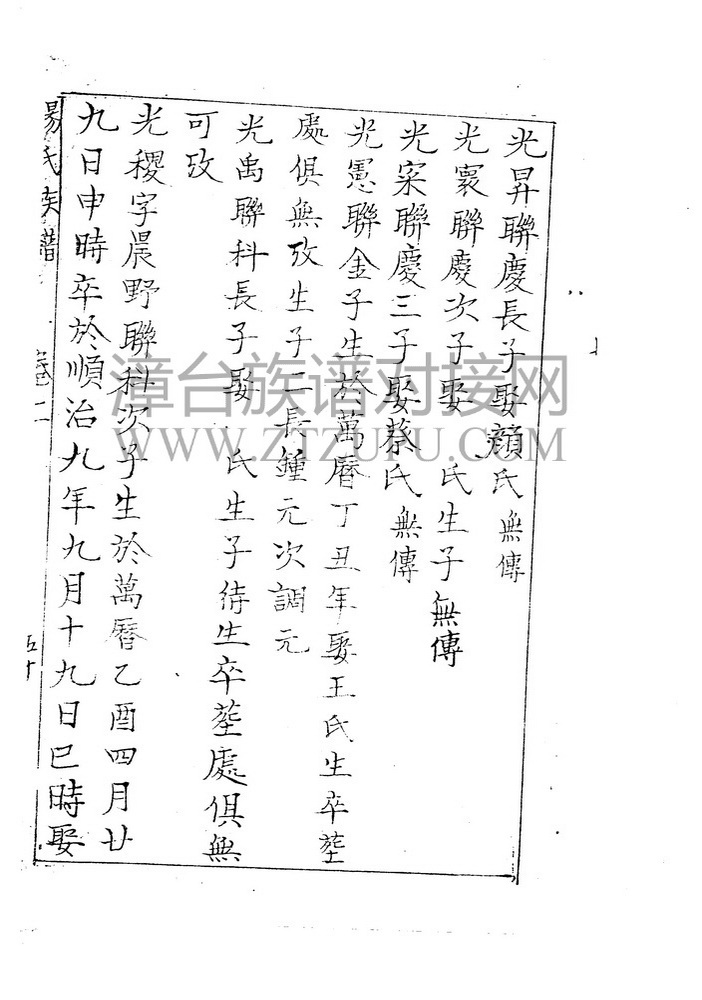 光昇聯慶長子娶顏氏無傳
光寰聯慶次子娶 氏生子無傳
光宷聯慶三子娶蔡氏無傳
光憲聯金子生於萬曆丁丑年娶王氏生卒塟
處俱無攷生子二長鍾元次調元
光禹聯科長子娶 氏生子待生卒塟處俱無
可攷
光稷字晨野聯科次子生於萬曆乙酉四月廿
九日申時卒於順治九年九月十九日巳時娶
楊氏族譜 卷二 五十
漳台族谱对接网
WWW.ZTZUPU.COM